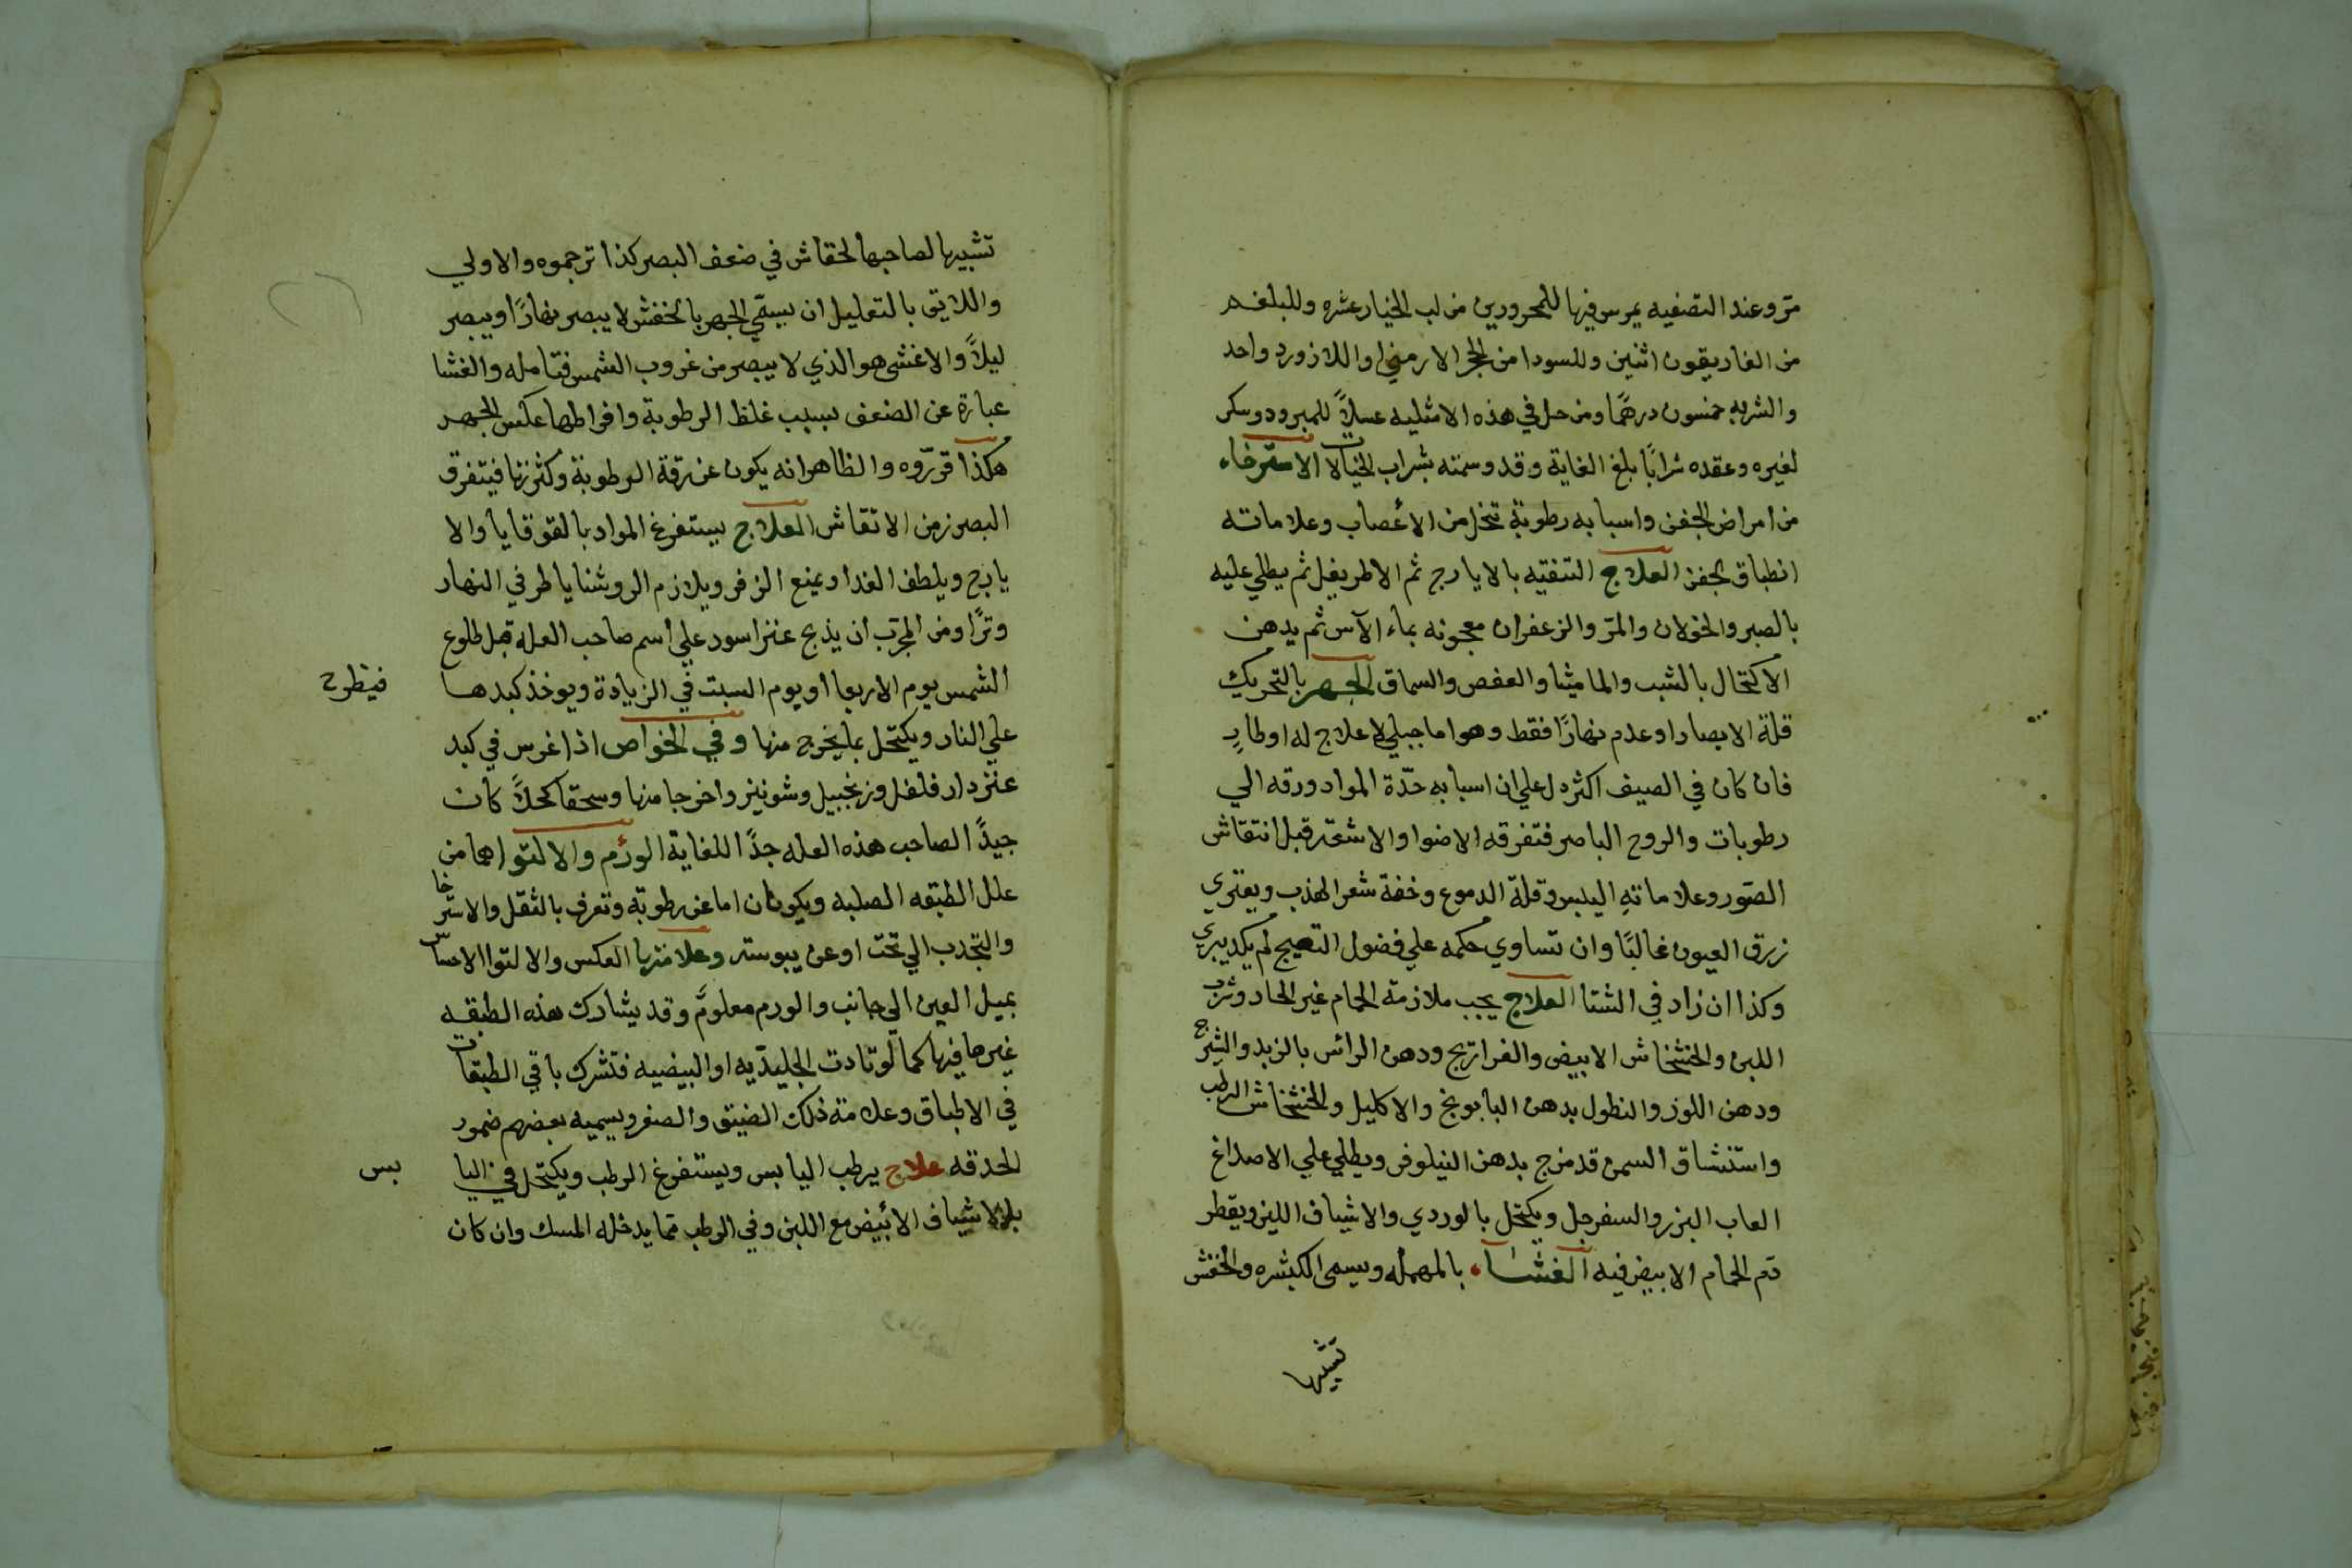 مرّ وعند التصفيه يمرس فيها للمحرورين من لب الخيار عشره وللبلغم
من الغاريقون اثنين وللسودا من الحجر الارمني او اللازورد واحد
والشربه خمسون درهمًا ومن حل في هذه الامثليه عسلاً للمبرود وسكر
لغيره وعقده شرابًا بلغ الغاية وقد وسمته بشراب الخيالات الاسترخاء
من امراض الجفن واسبابه رطوبة تنحل من الأعصاب وعلاماته
انطباق الجفن العلاج التنقيه بالايارج ثم الاطريفل ثم يطلي عليه
بالصبر والخولان والمرّ والزعفران معجونه بماء الآس ثم يدهن
الاكتحال بالشب والماميثا والعفص والسماق الجهر بالتحريك
قلة الابصار او عدم نهارًا فقط وهو اما جبلي لا علاج له او طارٍ
فان كان في الصيف اكثر دل علي ان اسبابه حدّة المواد ورقه الي
رطوبات والروح الباصر فتفرقه الاضوا والاشعّه قبل انتقاش
الصّور وعلاماتهِ اليبس وقلة الدموع وخفة شعر الهدب ويعتري
زرق العيون غالبًا وان تساوي حكمه علي فضول التهيج لم يكد يبري
وكذا ان زاد في الشتا العلاج يجب ملازمة الحمام غير الحار وشرب
اللبن والخشخاش الابيض والفراريج ودهن الرأس بالزبد والشيرج
ودهن اللوز والنطول بدهن البابونج والاكليل والخشخاش الرطب
واستنشاق السمن قد مزج بدهن النيلوفر ويطلي علي الاصداغ
العاب البزر والسفرجل ويكتحل بالوردي والاشياف اللين ويقطر
دم الحمام الابيض فيه الغشاء بالمهمله ويسمي الكبشره والخفش
تشبيها
تشبيها لصاحبها لحقاش في ضعف البصر كذا ترجموه والاولي
واللايق بالتعليل ان يسمّي الجهر بالخفش لا يبصر نهارًا ويبصر
ليلاً والاغشي هو الذي لا يبصر من غروب الشمس فتامله والغشا
عبارة عن الضعف بسبب غلظ الرطوبة وافراطها عكس الجهر
هكذا قرّروه والظاهر انه يكون عن رقة الرطوبة وكثرتها فيتفرق
البصر زمن الانتقاش العلاج يستفرغ المواد بالقوقايا والا
يارج ويلطف الغدا ويمنع الزفر ويلازم الروشنايا طرفي النهار
وترًا ومن المجرّب ان يذبح عنز اسود علي اسم صاحب العله قبل طلوع
الشمس يوم الاربعا او يوم السبت في الزيادة ويوخذ كبدها فيطرح
علي النار ويكتحل بما يخرج منها وفي الخواص اذا غرس في كبد
عنز دار فلفل وزنجبيل وشونيز واخرجا منها وسحقا كحلاً كان
جيدًا لصاحب هذه العله جدًا للغاية الورم والالتوا هما من
علل الطبقه الصلبه ويكونان اما عن رطوبة وتعرف بالثقل والاسترخا
والتجدب الي تحت او عن يبوسته وعلامتها العكس والالتوا الاحساس
بميل العين الي جانب والورم معلومٌ وقد يشارك هذه الطبقه
غيرها فيها كما لوتادت الجليديه او البيضيه فتشرك باقي الطبقات
في الاطباق وعلامة ذلك الضيق والصغر ويسميه بعضهم ضمور
الحدقه علاج يرطب اليابس ويستفرغ الرطب ويكتحل في اليا بس
بالاشياف الأبيض مع اللبن وفي الرطب بما يدخله المسك وان كان